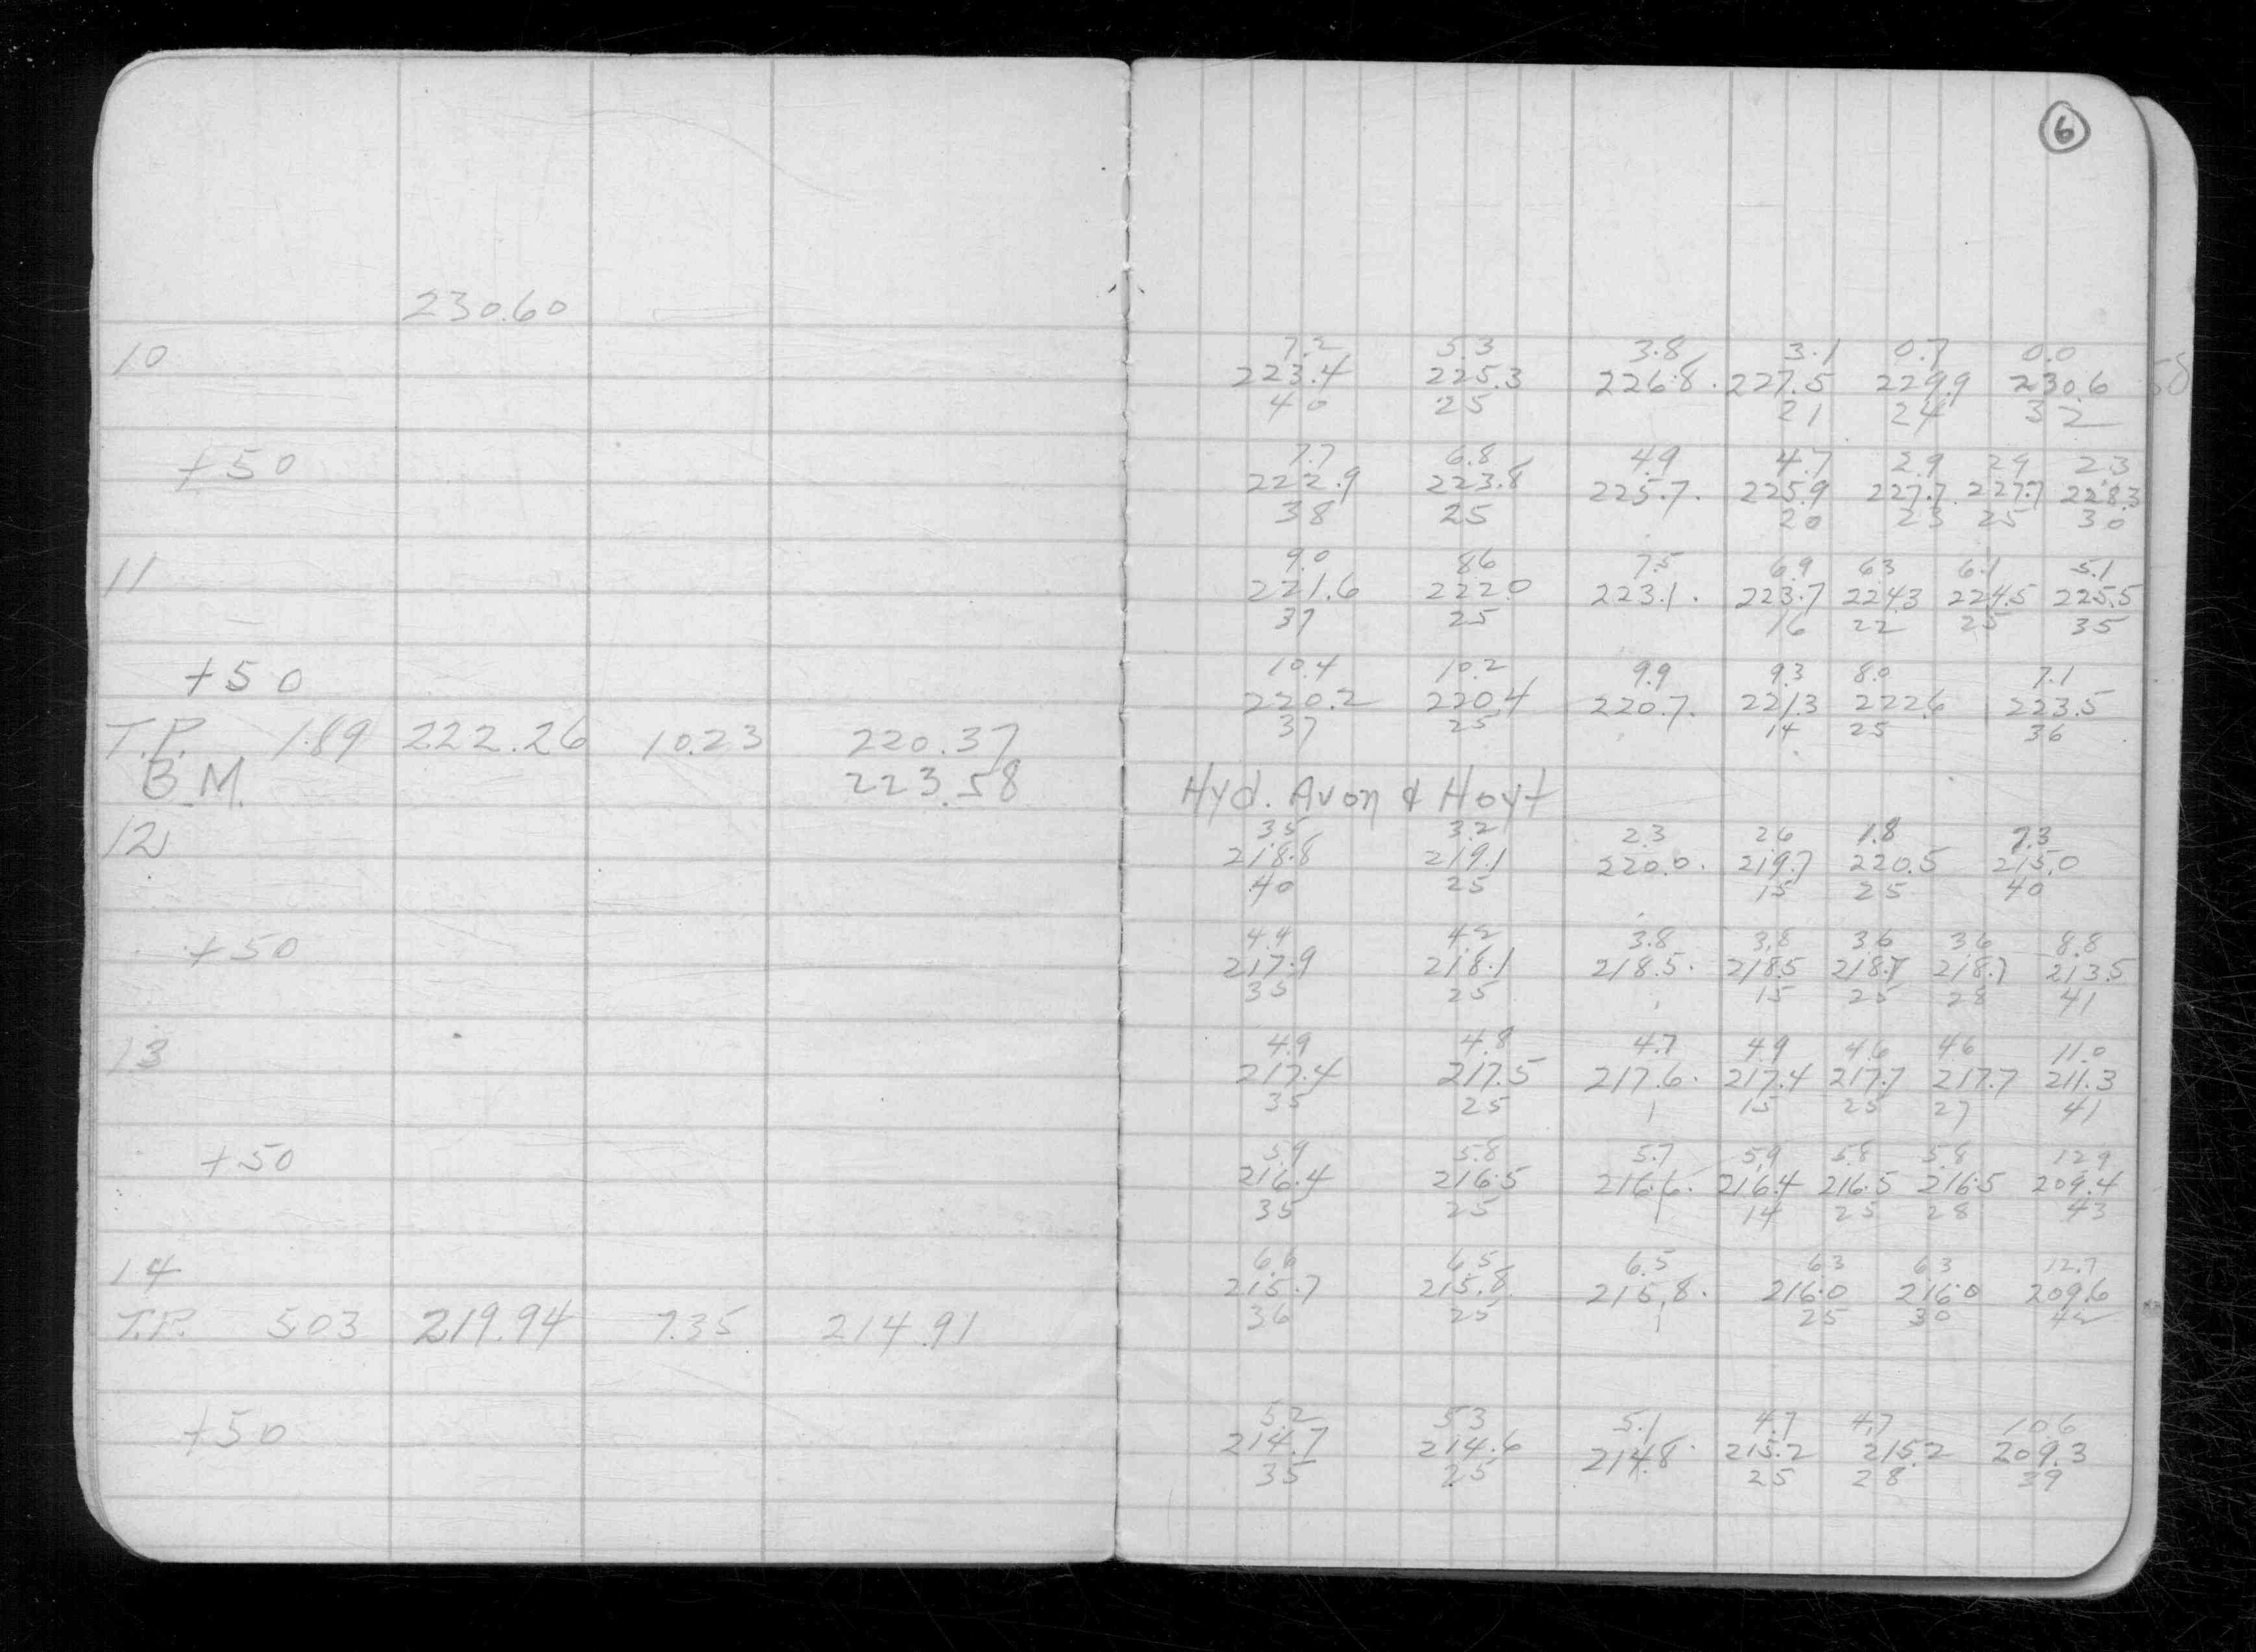 6
230.60
7.2 5.3 3.8 3.1 0.7 0.0
10 223.4 225.3 226.8. 227.5 229.9 230.6
40 25 21 24 32
7.7 6.8 4.9 4.7 2.9 2.9 2.3
+50 222.9 223.8 225.7. 225.9 227.7. 227.7 228.3
38 25 20 23 25 30
9.0 8.6 7.5 6.9 6.3 6.1 5.1
11 221.6 222.0 223.1. 223.7 224.3 224.5 225.5
37 25 16 22 25 35
10.4 10.2 9.9 9.3 8.0 7.1
+50 220.2 220.4 220.7. 221.3 222.6 223.5
37 25 14 25 36
T.P. 1.89 222.26 10.23 220.37
B.M. 223.58 Hyd. Avon & Hoyt
3.5 3.2 2.3 2.6 1.8 7.3
12 218.8 219.1 220.0. 219.7 220.5 215.0
40 25 15 25 40
4.4 4.2 3.8 3.8 3.6 3.6 8.8
+50 217.9 218.1 218.5. 218.5 218.7 218.7 213.5
35 25 15 25 28 41
4.9 4.8 4.7 4.9 4.6 4.6 11.0
13 217.4 217.5 217.6. 217.4 217.7 217.7 211.3
35 25 15 25 27 41
5.9 5.8 5.7 5.9 5.8 5.8 12.9
+50 216.4 216.5 216.6. 216.4 216.5 216.5 209.4
35 25 14 25 28 43
6.6 6.5 6.5 6.3 6.3 12.7
14 215.7 215.8 215.8. 216.0 216.0 209.6
36 25 25 30 42
T.P. 5.03 219.94 7.35 214.91
5.2 5.3 5.1 4.7 4.7 10.6
+50 214.7 214.6 214.8. 215.2 215.2 209.3
35 25 25 28 39